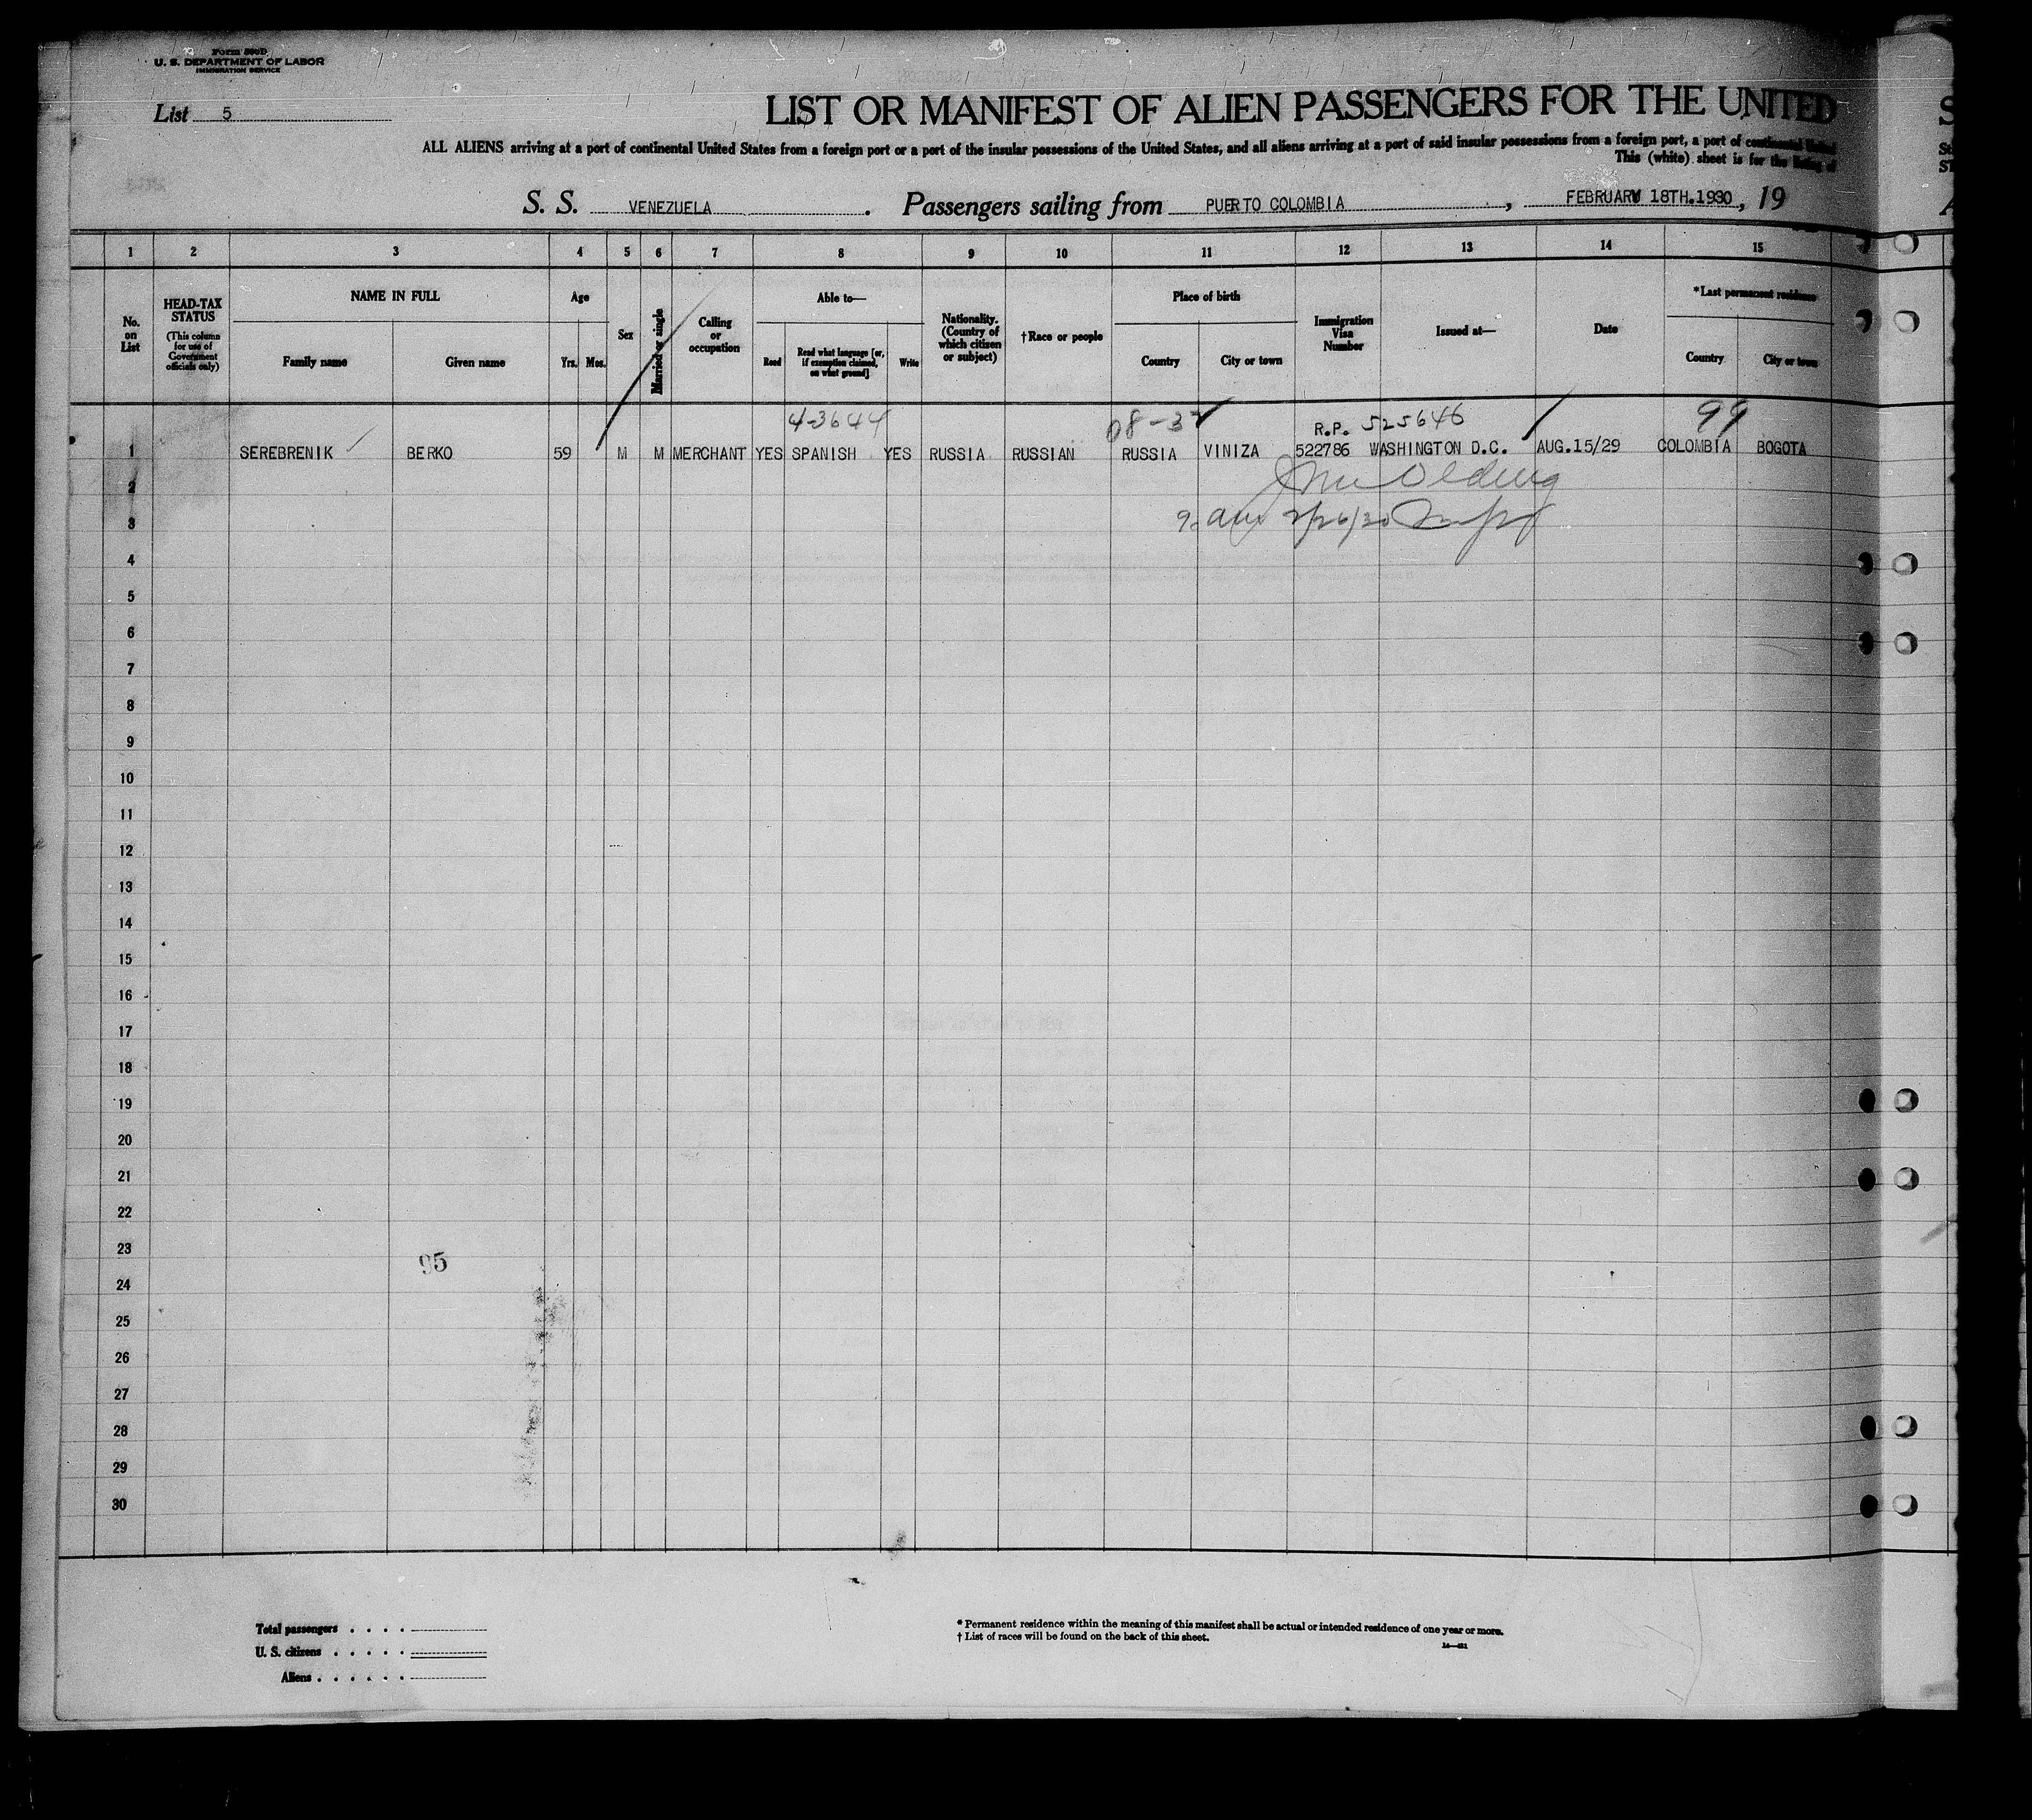 Form 500D
U. S. DEPARTMENT OF LABOR
IMMIGRATION SERVICE
List 5
LIST OR MANIFEST OF ALIEN PASSENGERS FOR THE UNITED
ALL ALIENS arriving at a port of continental United States from a foreign port or a port of the insular possessions of the United States, and all aliens arriving at a port of said insular possessions from a foreign port, a port of continental United
This (white) sheet is for the listing of
S. S. VENEZUELA. Passengers sailing from PUERTO COLOMBIA, FEBRUARY 18TH.1930, 19
1 2 3 4 5 6 7 8 9 10 11 12 13 14 15
No. on List
HEAD-TAX STATUS
(This column for use of Government officials only)
NAME IN FULL
Family name Given name
Age
Yrs. Mos.
Sex
Married or single
Calling or occupation
Able to—
Read Read what language [or, if exemption claimed, on what ground] Write
Nationality. (Country of which citizen or subject)
†Race or people
Place of birth
Country City or town
Immigration Visa Number
Issued at—
Date
*Last permanent residence
Country City or town
4-3644 08-37 R.P. 525646 99
1 SEREBRENIK BERKO 59 M M MERCHANT YES SPANISH YES RUSSIA RUSSIAN RUSSIA VINIZA 522786 WASHINGTON D.C. AUG.15/29 COLOMBIA BOGOTA
2
3 2/26/30
4
5
6
7
8
9
10
11
12
13
14
15
16
17
18
19
20
21
22
23
95
24
25
26
27
28
29
30
Total passengers . . . .
U. S. citizens . . . . .
Aliens . . . . . .
* Permanent residence within the meaning of this manifest shall be actual or intended residence of one year or more.
† List of races will be found on the back of this sheet.